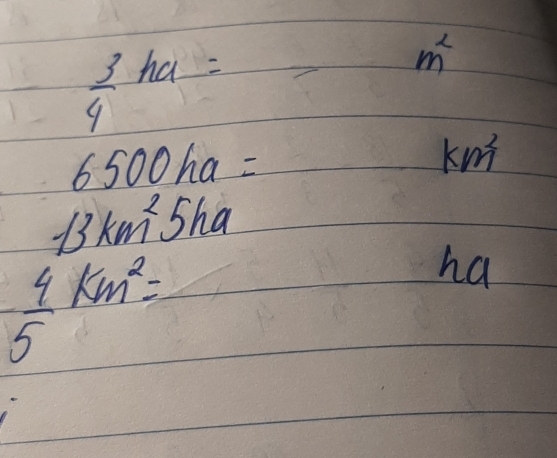 3/4 ha = m²
6500 ha = km²
13 km² 5 ha
4/5 km² = ha